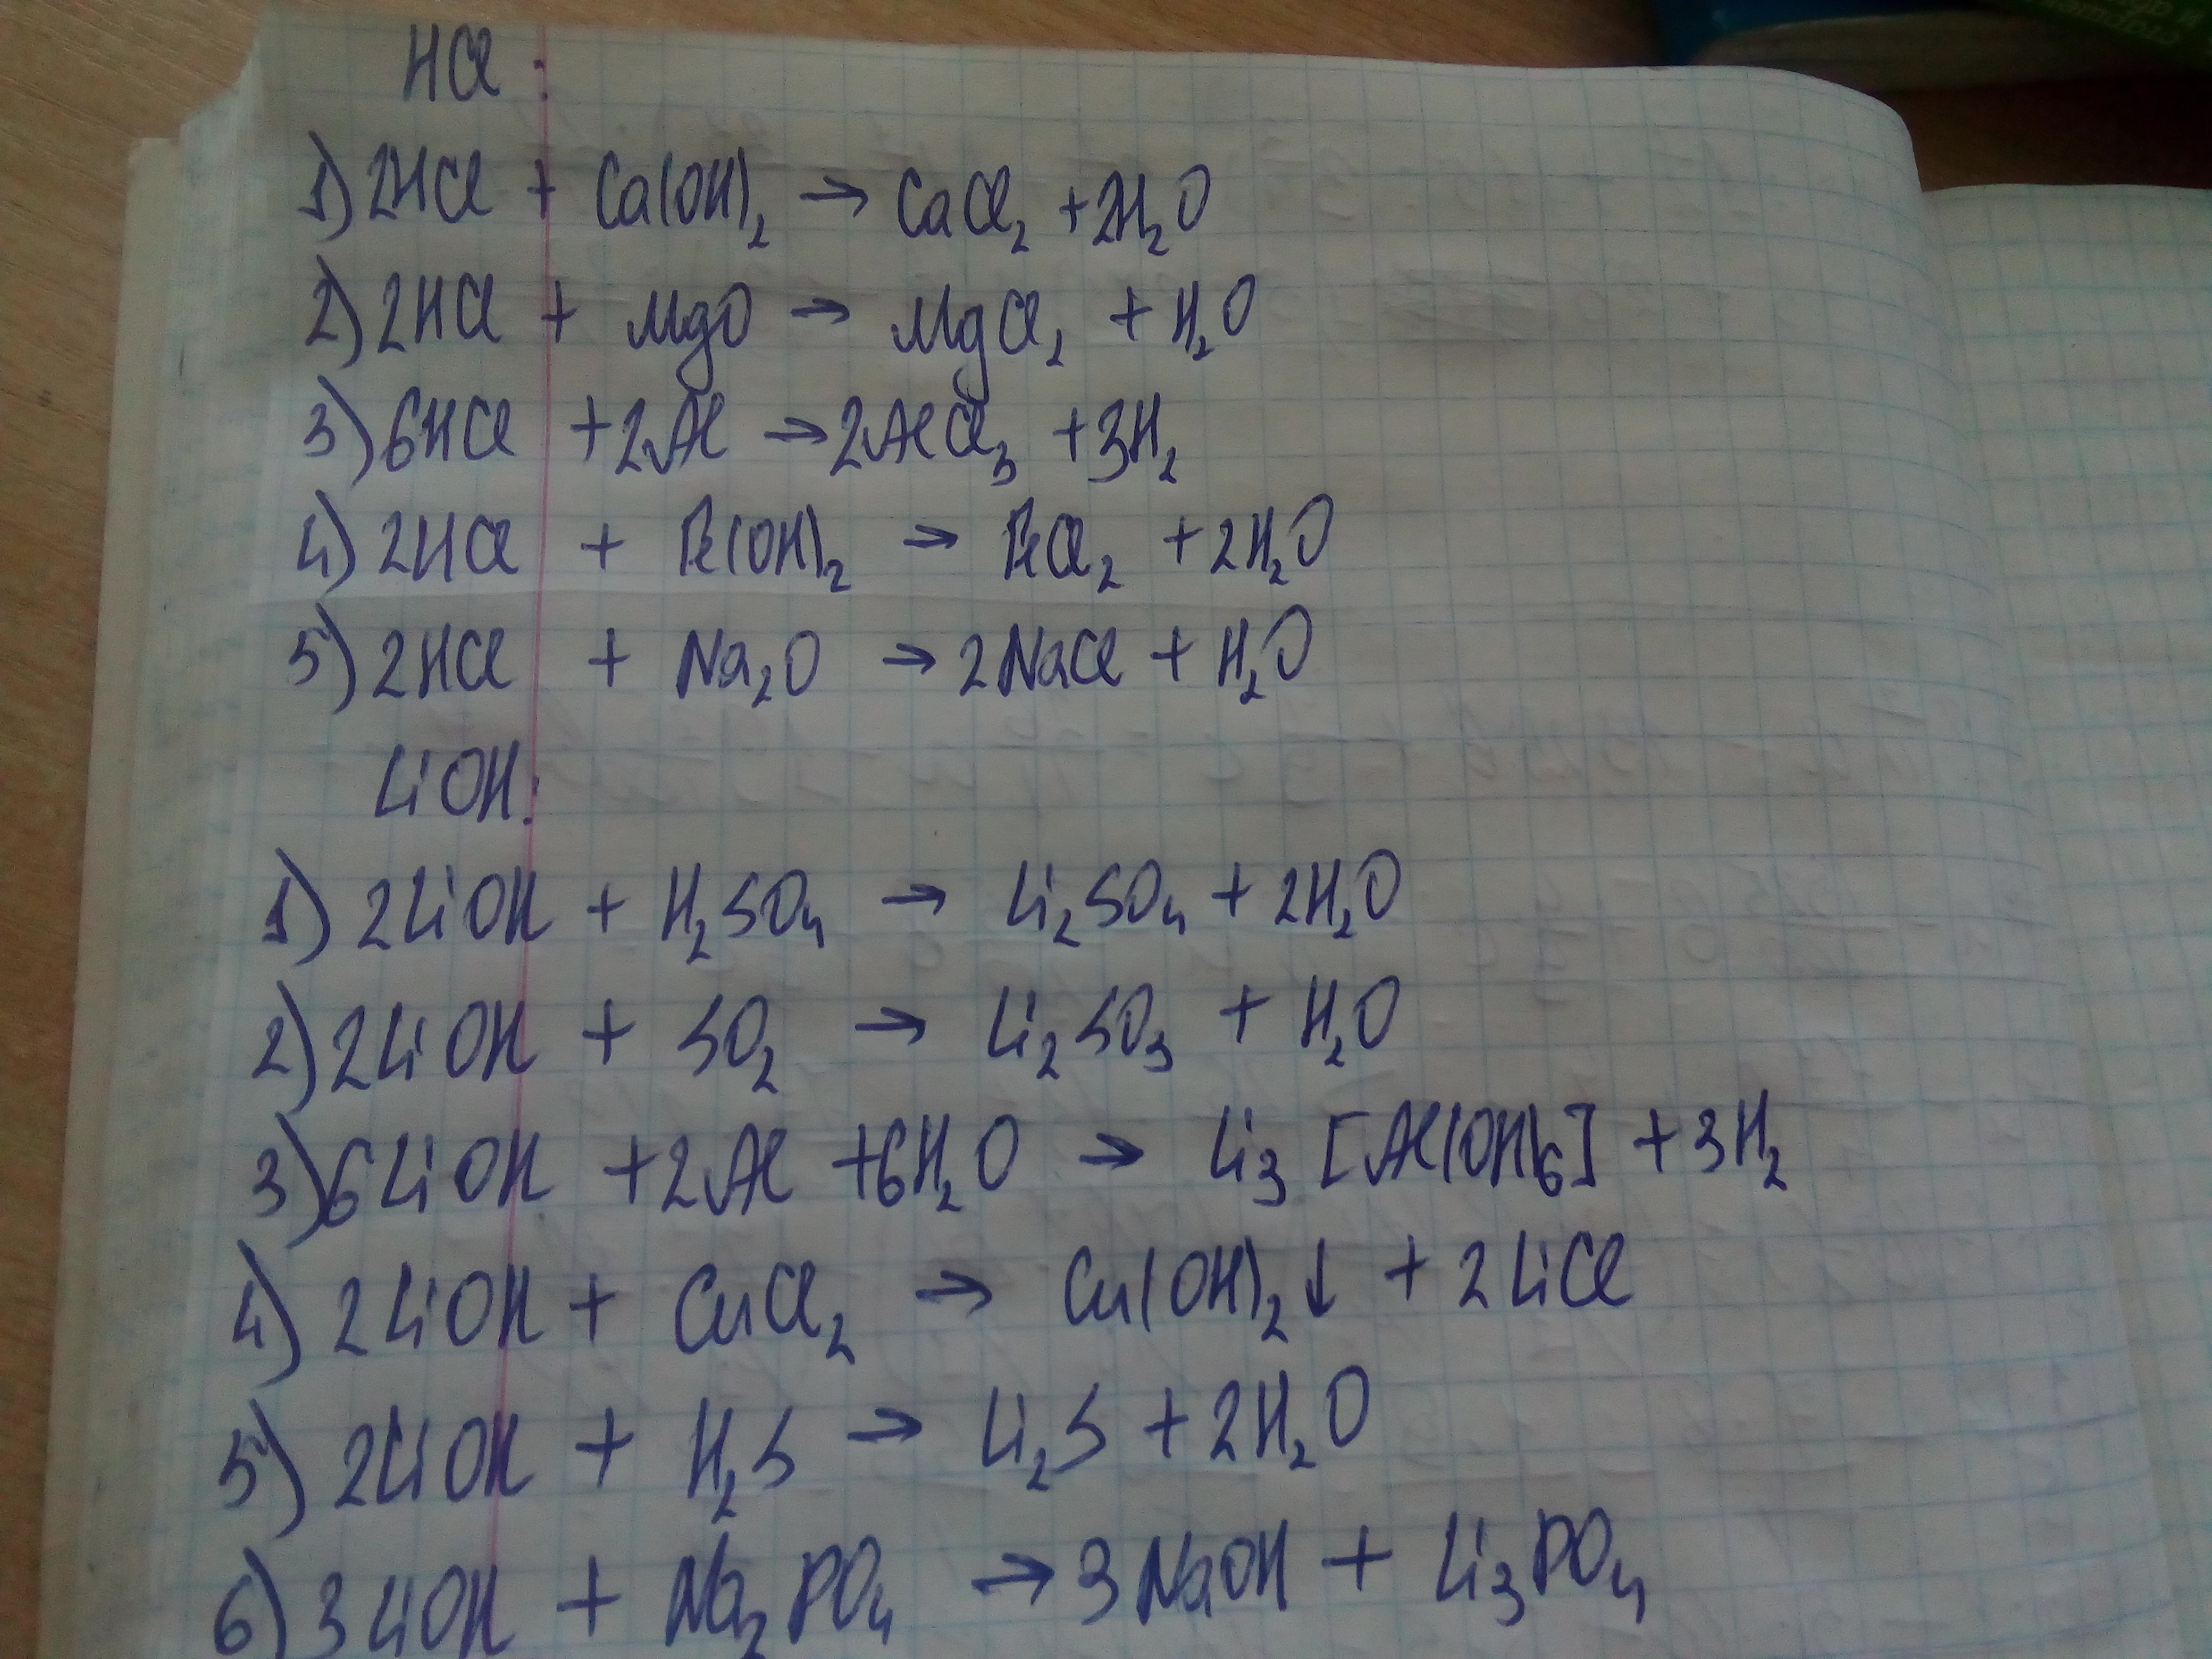 HCl :
1) 2HCl + Ca(OH)₂ → CaCl₂ + 2H₂O
2) 2HCl + MgO → MgCl₂ + H₂O
3) 6HCl + 2Al → 2AlCl₃ + 3H₂
4) 2HCl + Fe(OH)₂ → FeCl₂ + 2H₂O
5) 2HCl + Na₂O → 2NaCl + H₂O
LiOH:
1) 2LiOH + H₂SO₄ → Li₂SO₄ + 2H₂O
2) 2LiOH + SO₂ → Li₂SO₃ + H₂O
3) 6LiOH + 2Al + 6H₂O → Li₃[Al(OH)₆] + 3H₂
4) 2LiOH + CuCl₂ → Cu(OH)₂↓ + 2LiCl
5) 2LiOH + H₂S → Li₂S + 2H₂O
6) 3LiOH + Na₃PO₄ → 3NaOH + Li₃PO₄